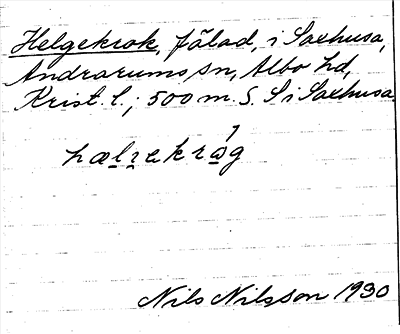 Helgekrok, fälad, i Saxhusa,
Andrarums sn, Albo hd,
Krist. l.; 500 m. S. S i Saxhusa.
hælzekrå̱g
Nils Nilsson 1930